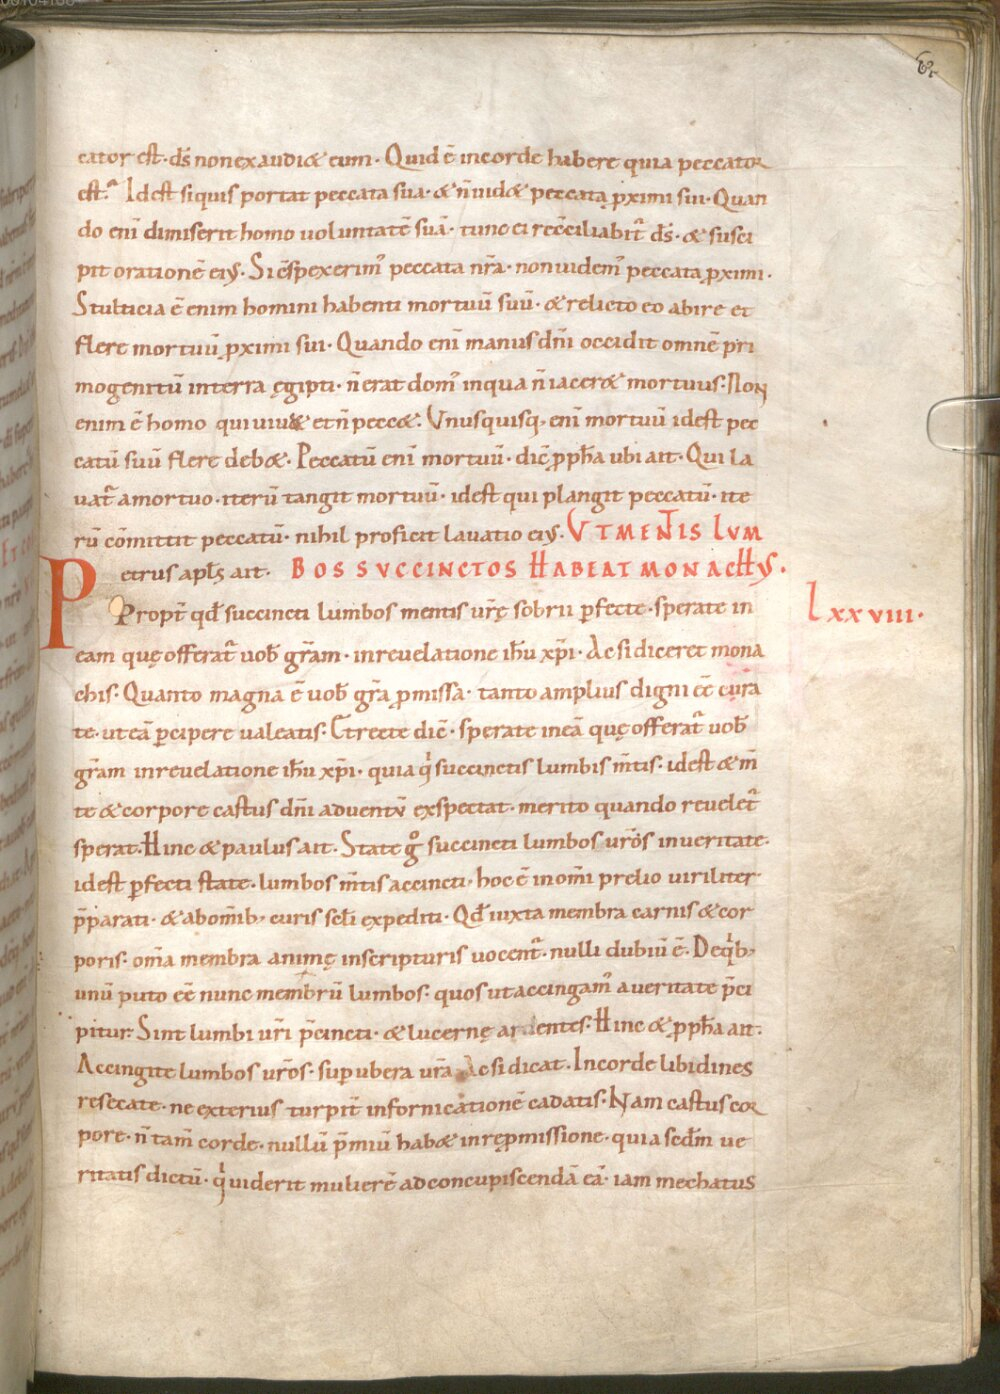 cator est· ds̄ non exaudi& eum· Quid ē in corde habere quia peccator
est? Idest siquis portat peccata sua· & n̄ uid& peccata ꝓximi sui· Quan
do eni̅ dimiserit homo uoluntatē suā· tunc ei reccnciliabit᷑ ds̄· & susci
pit orationē eiꝰ· Si c̄spexerimꝰ peccata nr̄a· non uidemꝰ peccata ꝓximi·
Stulticia ē enim homini habenti mortuū suū· & relicto eo abire et
flere mortuū ꝓximi sui· Quando eni̅ manus dn̄i occidit omnē pri
mogenitū in terra ęgipti· n̄ erat domꝰ in qua n̄ iacer& mortuus· Non
enim ē homo qui uiu& et n̄ pecc&· Vnusquisq; eni̅ mortuū idest pec
catū suū flere deb&· Peccatū eni̅ mortuū· dic̄ ꝓph̄a ubi ait· Qui la
uat᷑ a mortuo· iterū tangit mortuū· idest qui plangit peccatū· ite
rū cōmittit peccatū· nihil proficit lauatio eiꝰ· VT MENTIS LVM
Petrus apl̄s ait· BOS SVCCINCTOS HABEAT MONACHVS·
Propt᷑ qđ succincti lumbos mentis ur̄ę sobrii ꝑfecte· sperate in
LXXVIII·
eam quę offerat᷑ uob̄ gr̄am· in reuelatione ih̄u xp̄i· Ac si diceret mona
chis· Quanto magna ē uob̄ gr̄a ꝓmissa· tanto amplius digni eē cura
te· ut eā ꝑcipere ualeatis· Et recte dic̄· sperate in eā quę offerat᷑ uob̄
gr̄am in reuelatione ih̄u xp̄i· quia qͥ succinctis lumbis m̄tis· idest & m̄
te & corpore castus dn̄i aduentū exspectat· merito quando reuelet᷑
sperat· Hinc & paulus ait· State gͦ succincti lumbos ur̄os in ueritate·
idest ꝑfecti state· lumbos m̄tis accincti· hoc ē in om̄i prelio uiriliter
p̄parati· & ab om̄ib; curis scl̄i expediti· Qđ iuxta membra carnis & cor
poris· om̄a membra animę in scripturis uocent᷑· nulli dubiū ē· De qͥb;
unū puto eē nunc membrū lumbos· quos ut accingamꝰ a ueritate p̄ci
pitur· Sint lumbi ur̄i p̄cincti· & lucernę ardentes· Hinc & ꝓph̄a ait·
Accingite lumbos ur̄os· sup ubera ur̄a Ac si dicat· In corde libidines
resecate· ne exterius turpit᷑ in fornicationē cadatis· Nam castus cor
pore· n̄ tam̄ corde· nullū p̄miū hab& in ręꝓmissione· quia scd̄m ue
ritatis dictū· qͥ uiderit mulierē ad concupiscendā eā· iam mechatus